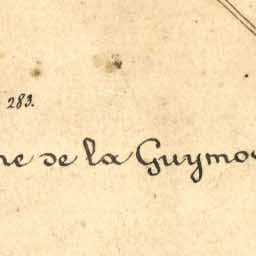 283.
ne de la Guymo